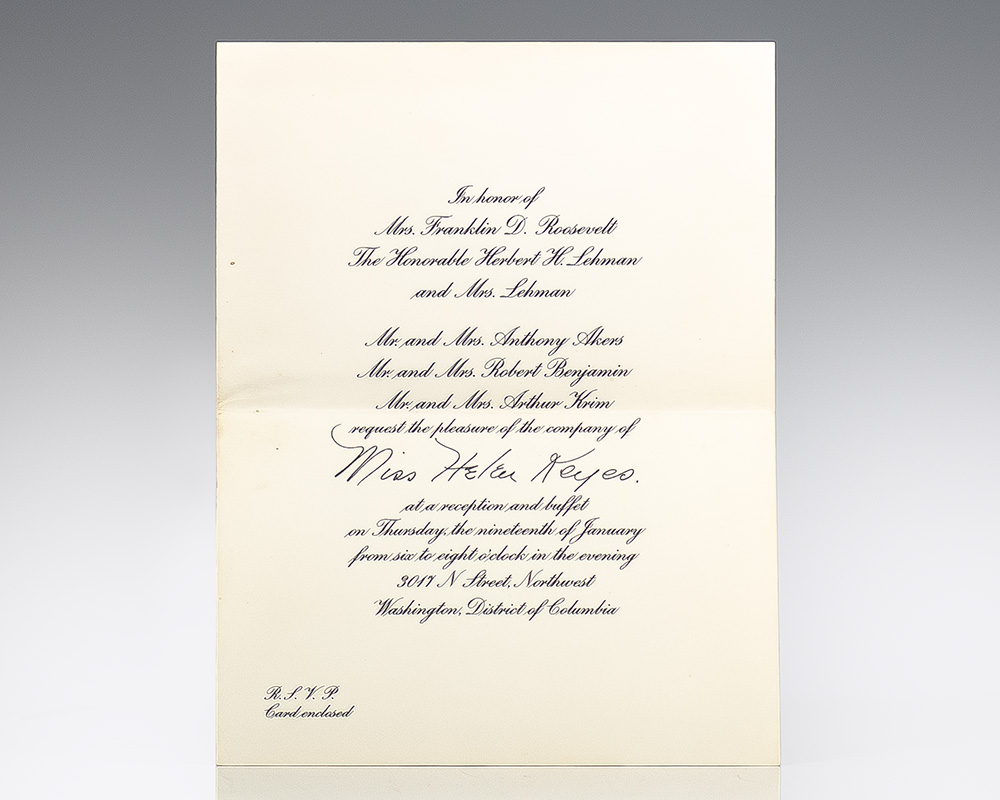 In honor of
Mrs. Franklin D. Roosevelt
The Honorable Herbert H. Lehman
and Mrs. Lehman
Mr. and Mrs. Anthony Akers
Mr. and Mrs. Robert Benjamin
Mr. and Mrs. Arthur Krim
request the pleasure of the company of
Miss Helen Keyes.
at a reception and buffet
on Thursday, the nineteenth of January
from six to eight o'clock in the evening
3017 N Street, Northwest
Washington, District of Columbia
R. S. V. P.
Card enclosed